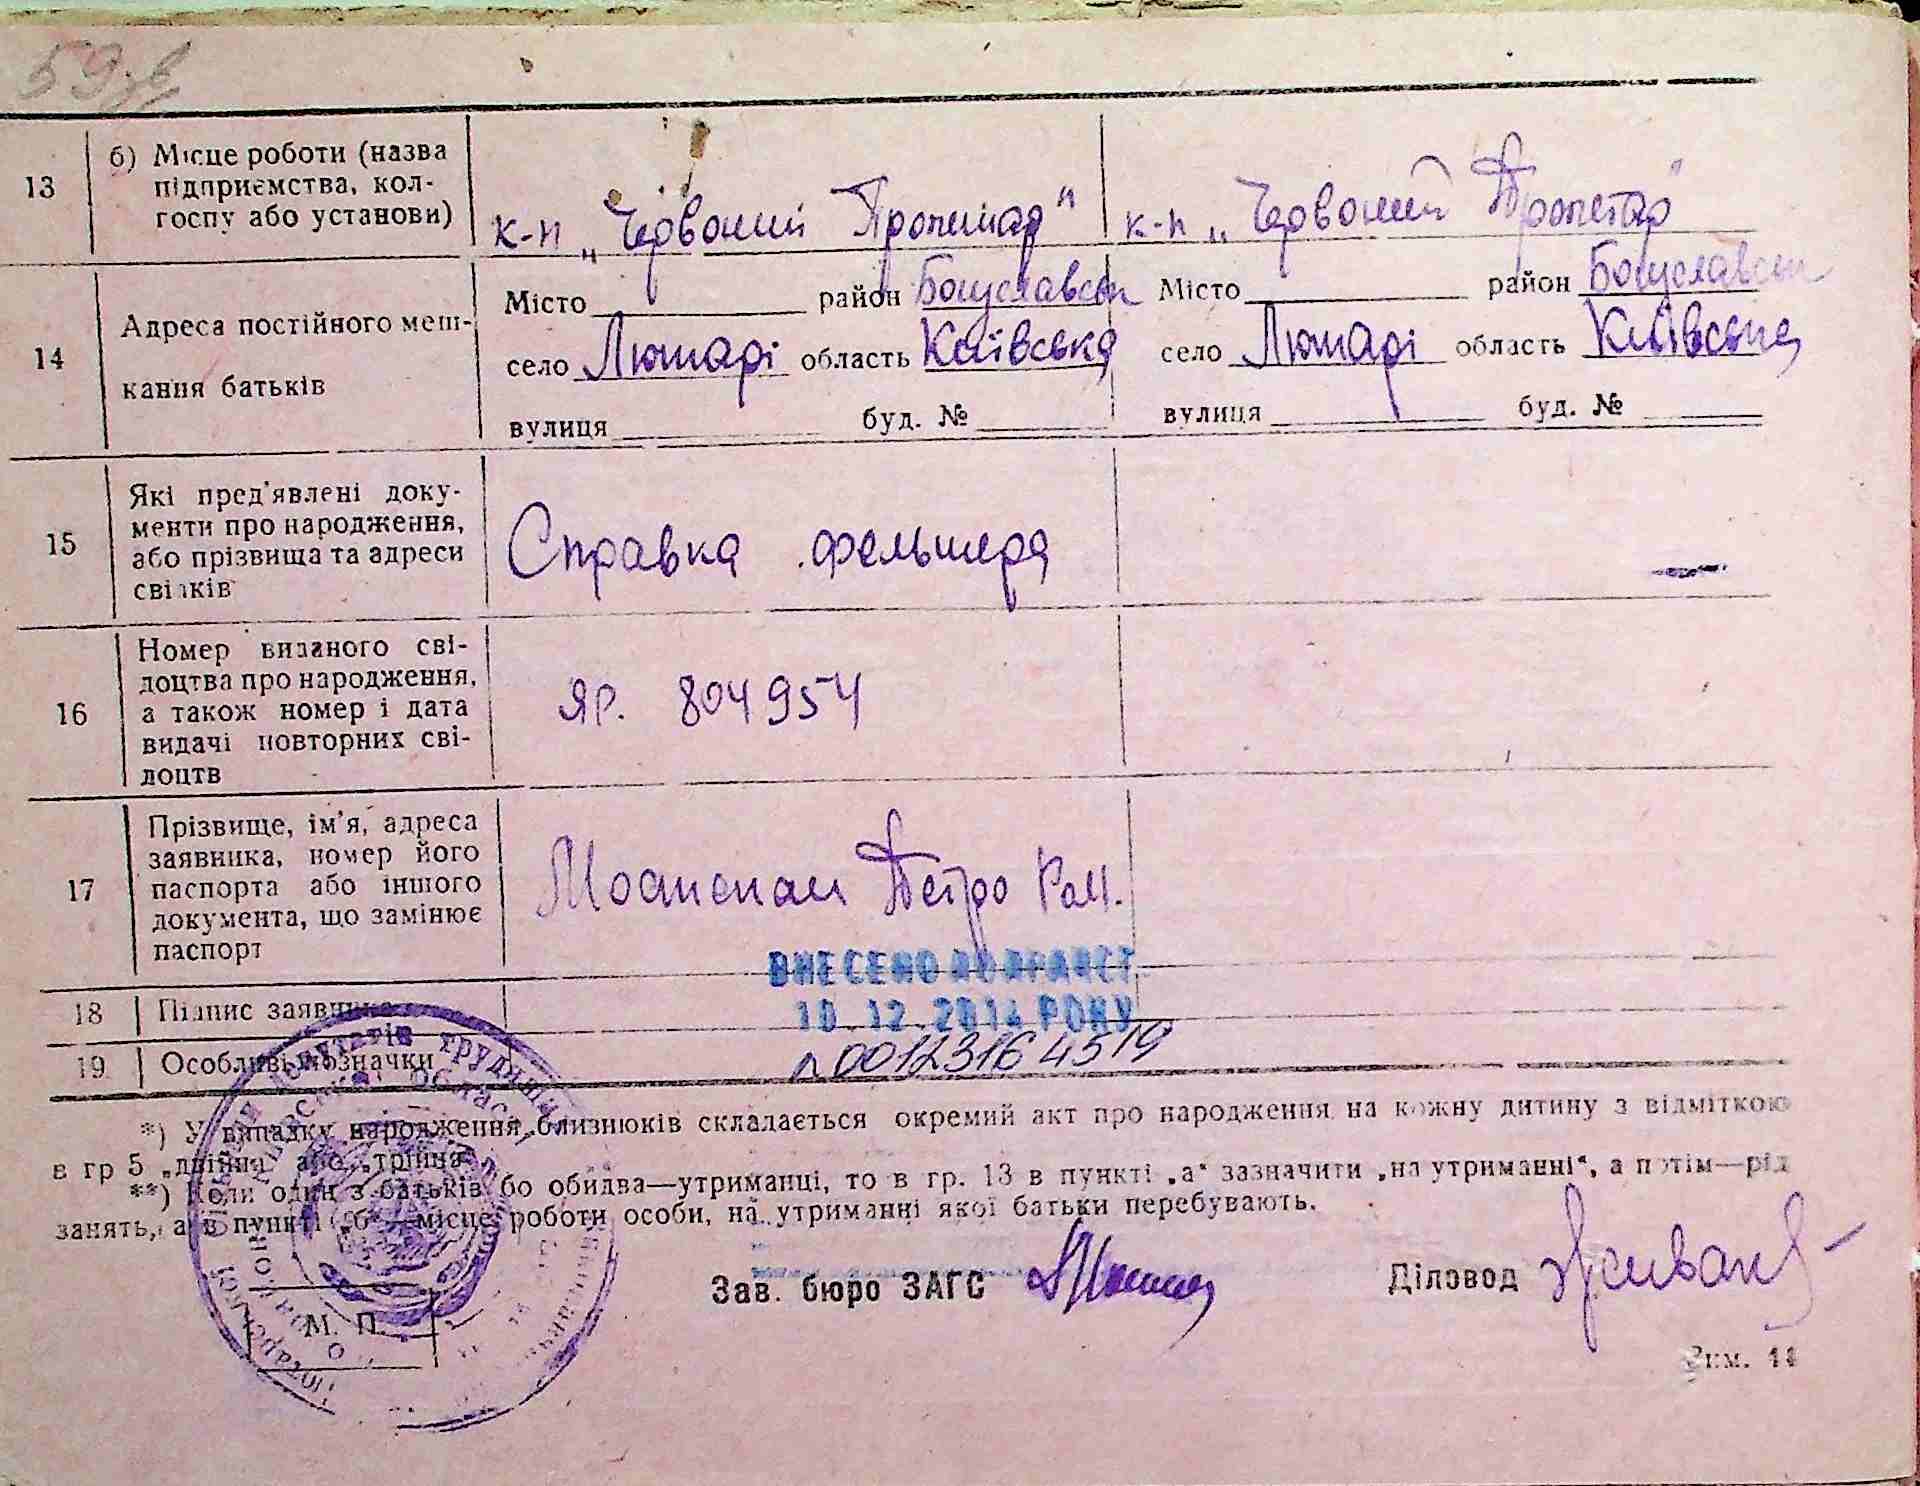 59 зв
13 б) Місце роботи (назва підприємства, колгоспу або установи)
к-п „Червоний Пролетар"
к-п „Червоний Пролетар"
14 Адреса постійного мешкання батьків
Місто район Богуславськ
село Лютарі область Київська
вулиця буд. №
Місто район Богуславськ
село Лютарі область Київська
вулиця буд. №
15 Які пред'явлені документи про народження, або прізвища та адреси свідків
Справка фельшера
16 Номер виданого свідоцтва про народження, а також номер і дата видачі повторних свідоцтв
ЯР. 804954
17 Прізвище, ім'я, адреса заявника, номер його паспорта або іншого документа, що замінює паспорт
Петро Ром.
ВНЕСЕНО ДО ДРАЦСГ
10.12.2014 РОКУ
18 Підпис заявника
19 Особливі позначки
00123164519
*) У випадку народження близнюків складається окремий акт про народження на кожну дитину з відміткою
в гр 5 „двійня" або „трійня"
**) Коли один з батьків або обидва—утриманці, то в гр. 13 в пункті „а" зазначити „на утриманні", а потім—рід
занять, а в пункті „б"—місце роботи особи, на утриманні якої батьки перебувають.
Зав. бюро ЗАГС
Діловод
М. П.